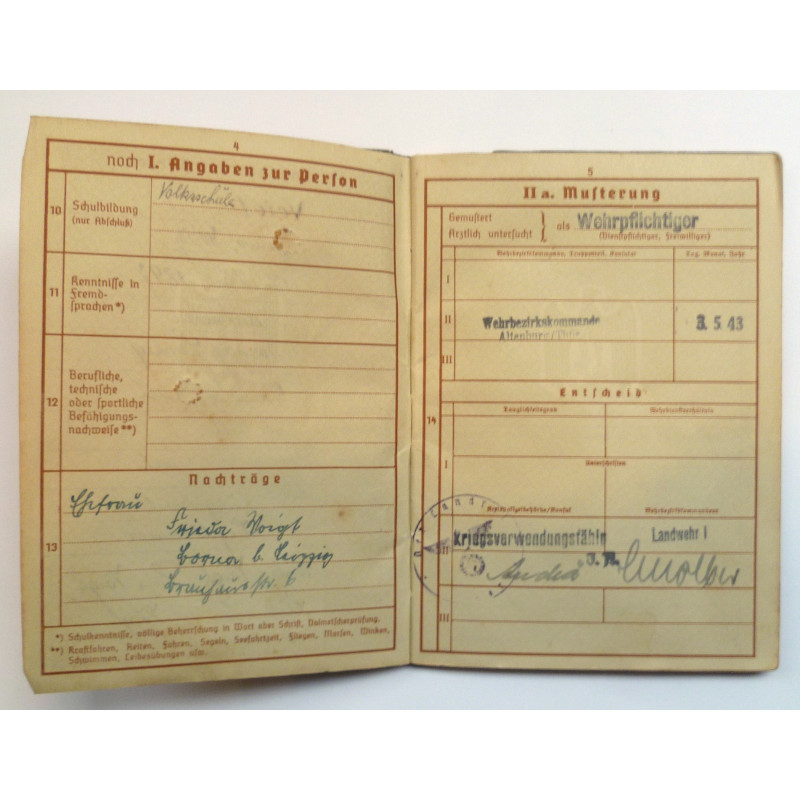 4
noch I. Angaben zur Person
10 Schulbildung
(nur Abschluß)
Volksschule
11 Kenntnisse in
Fremd-
sprachen*)
12 Berufliche,
technische
oder sportliche
Befähigungs-
nachweise**)
Nachträge
13
Ehefrau
Frieda Voigt
Borna b. Leipzig
Brauhausstr. 6
*) Schulkenntnisse, völlige Beherrschung in Wort oder Schrift, Dolmetscherprüfung.
**) Kraftfahren, Reiten, Fahren, Segeln, Seefahrtzeit, Fliegen, Morsen, Winken,
Schwimmen, Leibesübungen usw.
5
II a. Musterung
Gemustert
Ärztlich untersucht } als Wehrpflichtiger
(Dienstpflichtiger, Freiwilliger)
Tag, Monat, Jahr
I
II Wehrbezirkskommando
Altenburg/Thür
3. 5. 43
III
Entscheid
14
Tauglichkeitsgrad
Wehrdienstverhältnis
I
Unterschriften
Wehrbezirkskommando
Der Landr
II Kriegsverwendungsfähig
Landwehr I
III